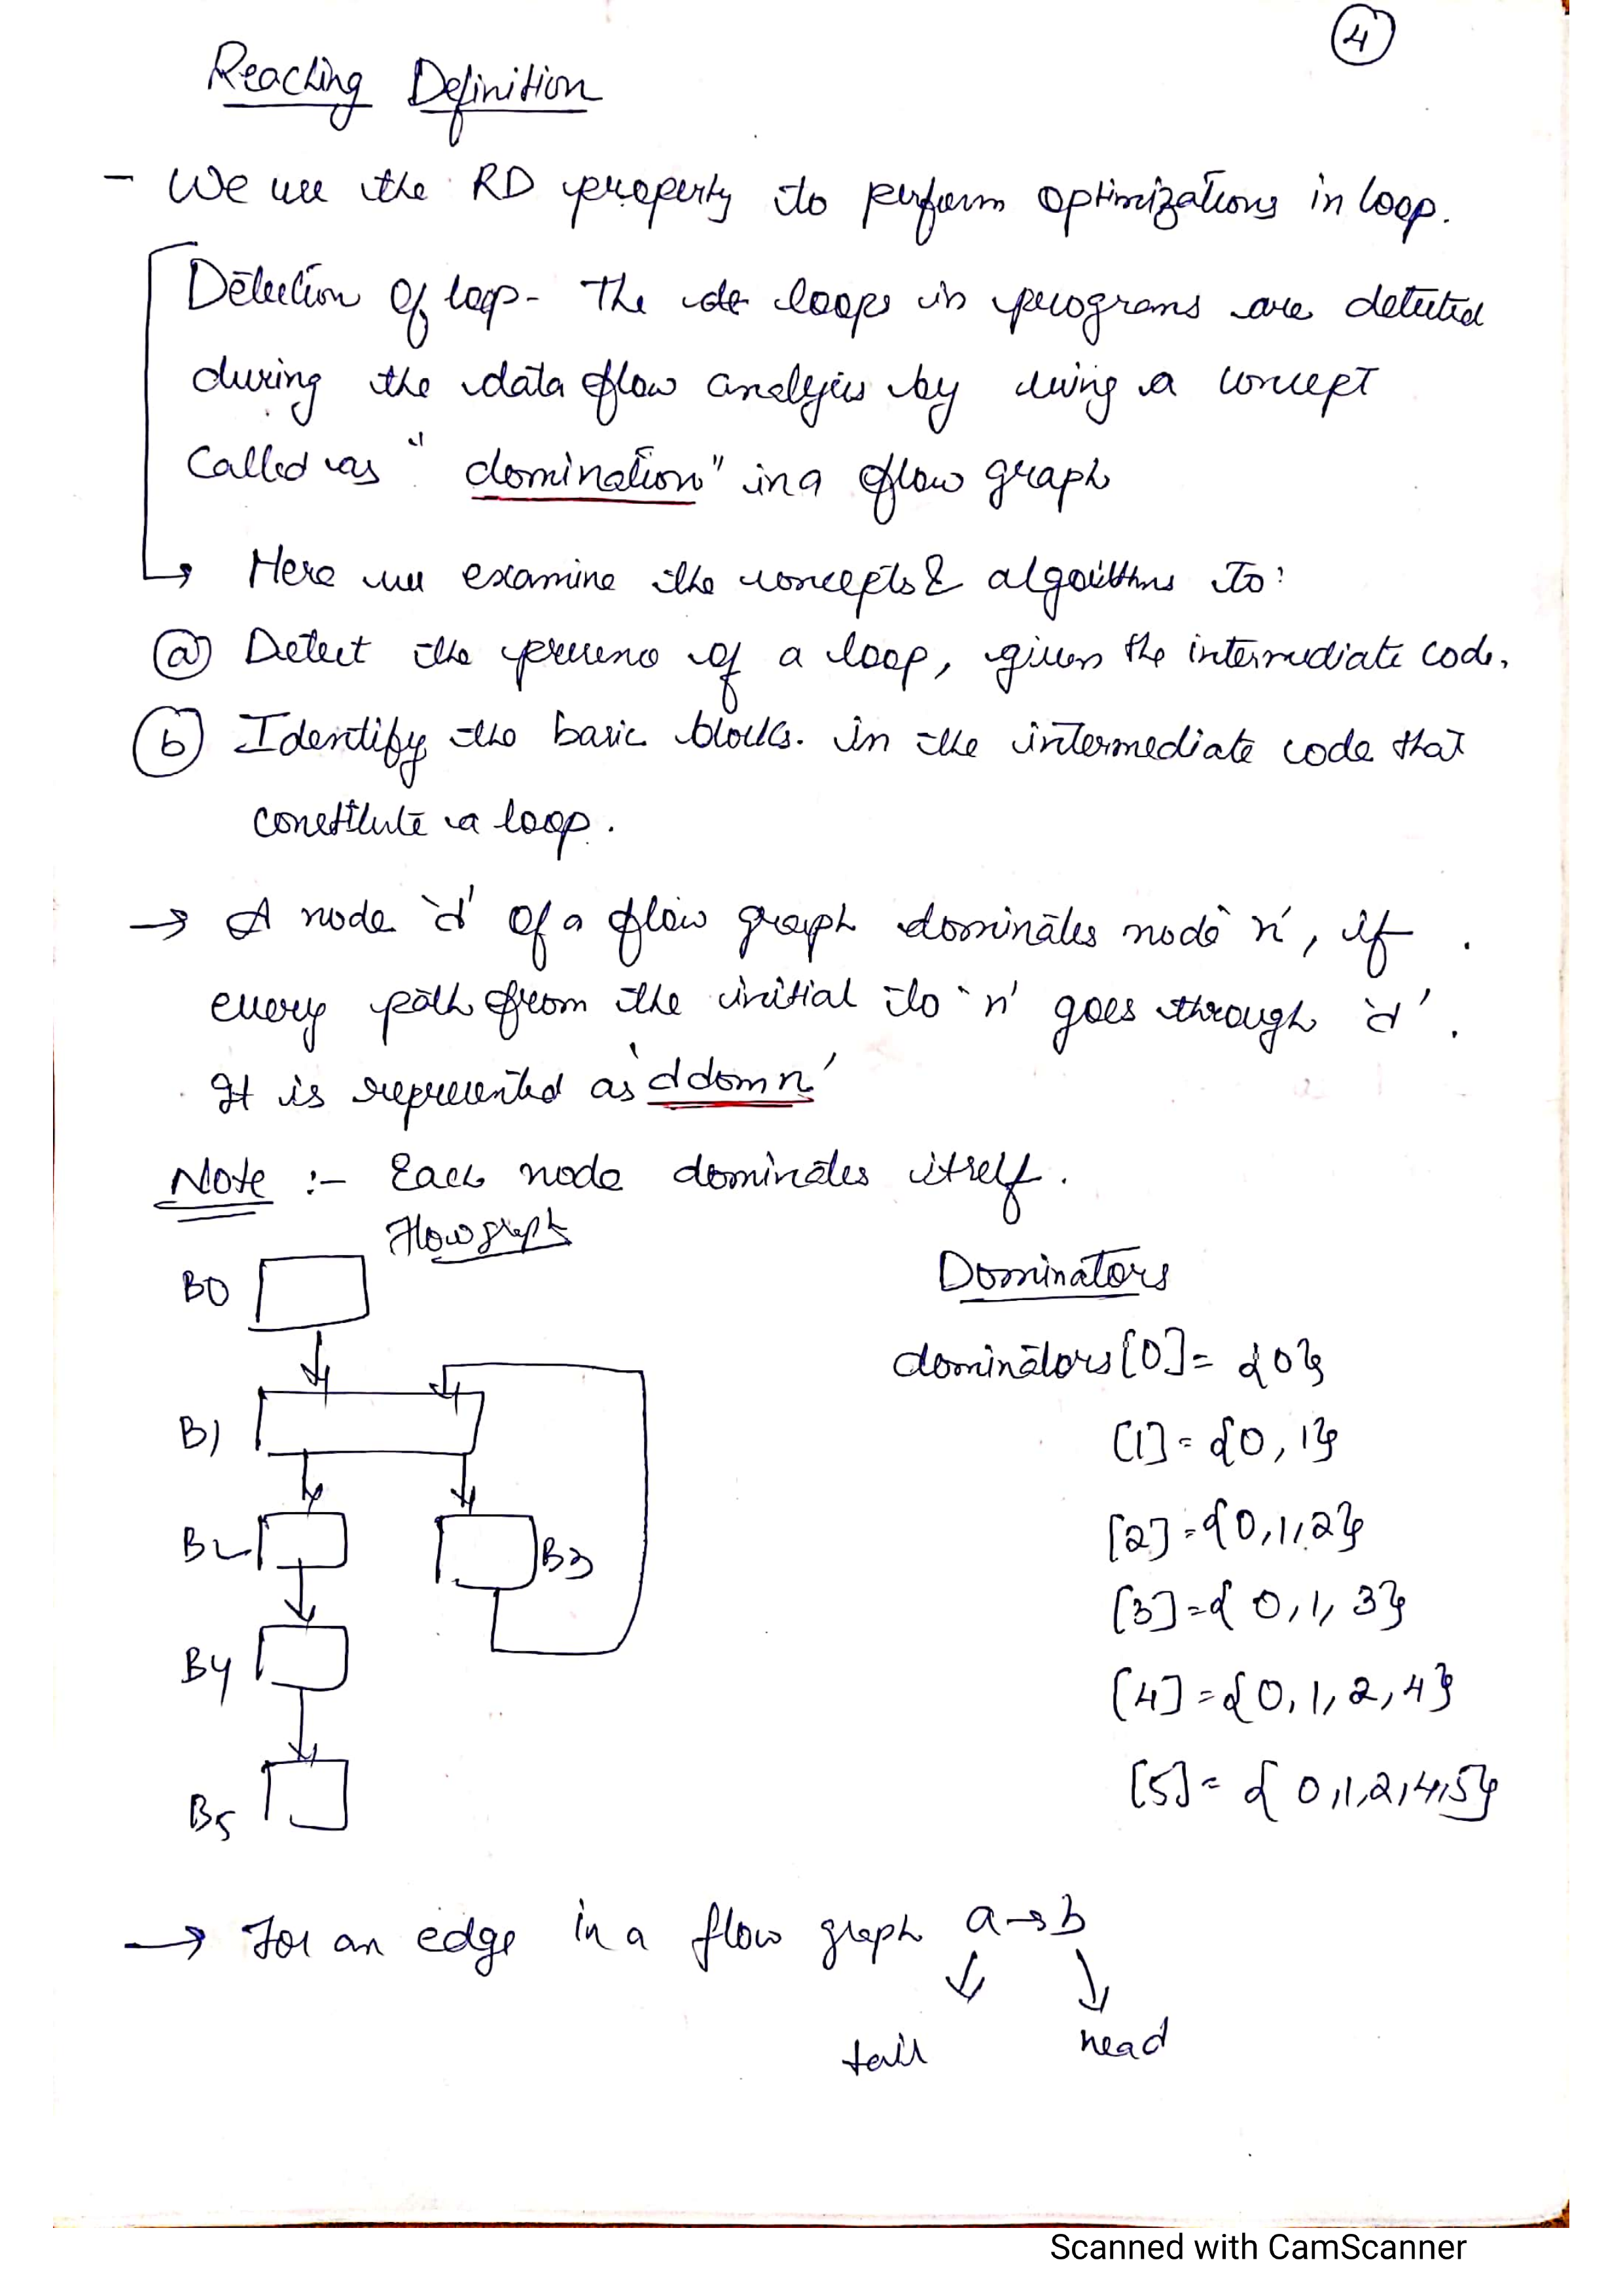 4
Reaching Definition
- We use the RD property to perform optimizations in loop.
Detection of loop - The loops in programs are detected
during the data flow analysis by using a concept
called as "domination" in a flow graph
↳ Here we examine the concepts & algorithms to:
(a) Detect the presence of a loop, given the intermediate code.
(b) Identify the basic blocks in the intermediate code that
constitute a loop.
→ A node 'd' of a flow graph dominates node 'n', if
every path from the initial to 'n' goes through 'd'.
It is represented as 'd dom n'
Note :- Each node dominates itself.
Flow graph
Dominators
B0
dominators[0] = {0}
B1
[1] = {0, 1}
B2
B3
[2] = {0,1,2}
[3] = {0,1,3}
B4
[4] = {0,1,2,4}
B5
[5] = {0,1,2,4,5}
→ For an edge in a flow graph a→b
tail head
Scanned with CamScanner